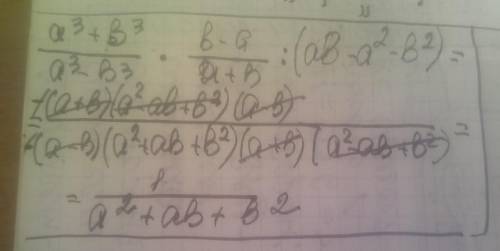 a³ + b³ / a³ - b³ · b - a / a + b : (ab - a² - b²) =
= -(a+b)(a² - ab + b²)(a-b) / -(a-b)(a² + ab + b²)(a+b)(a² - ab + b²) =
= 1 / a² + ab + b²